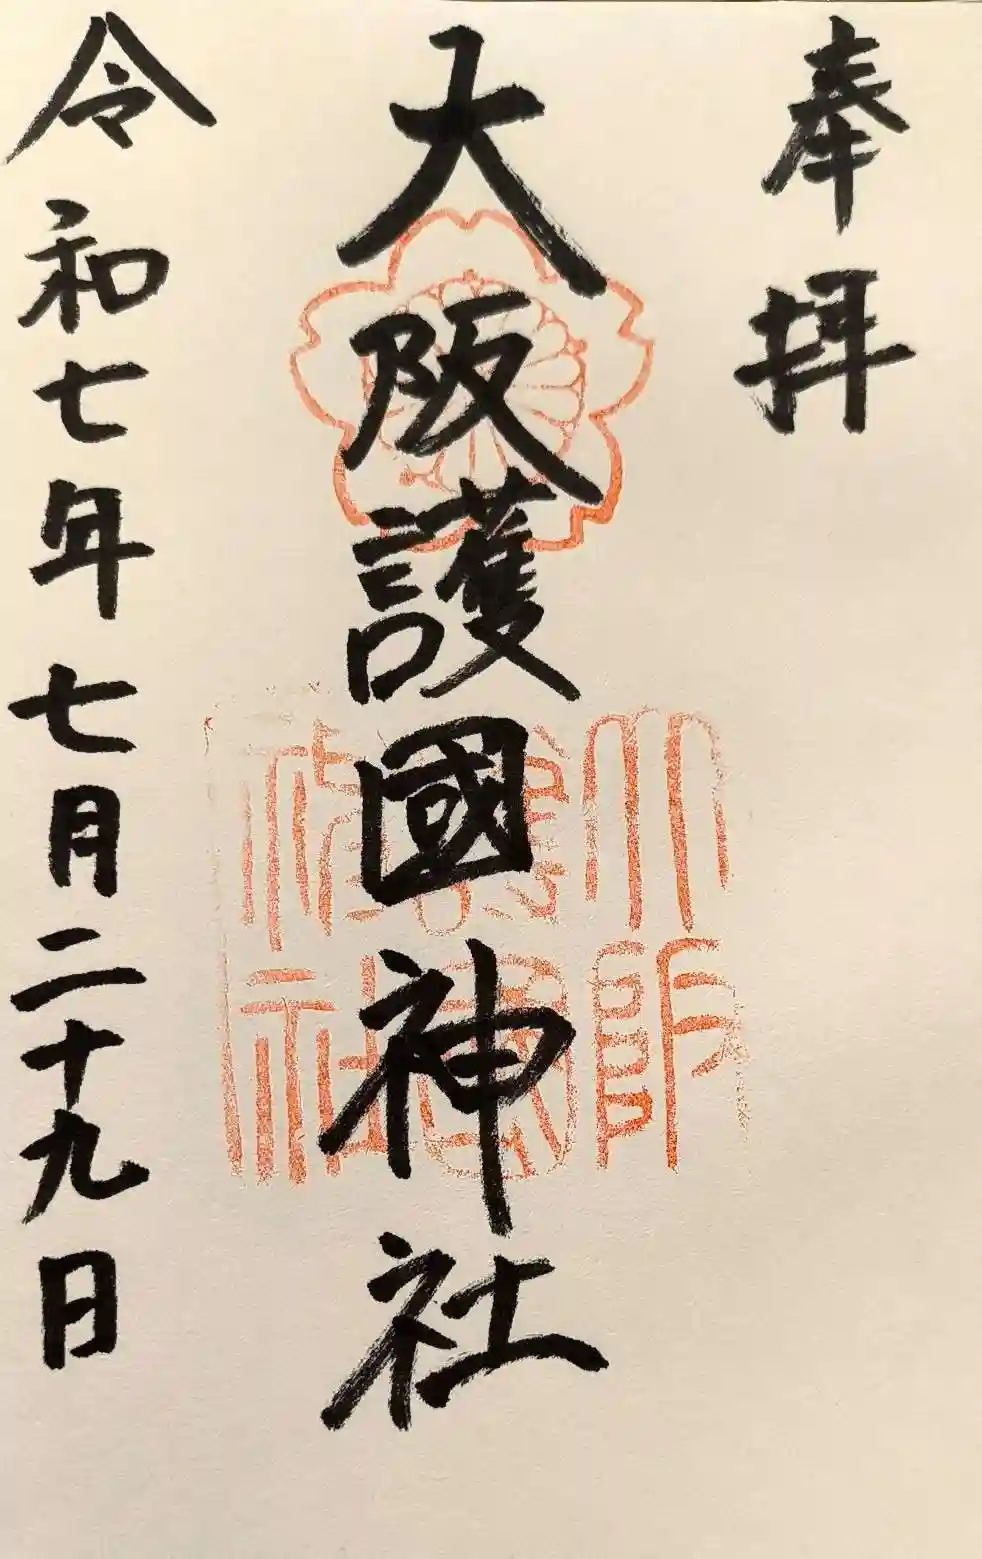 奉拝
大阪護國神社
令和七年七月二十九日